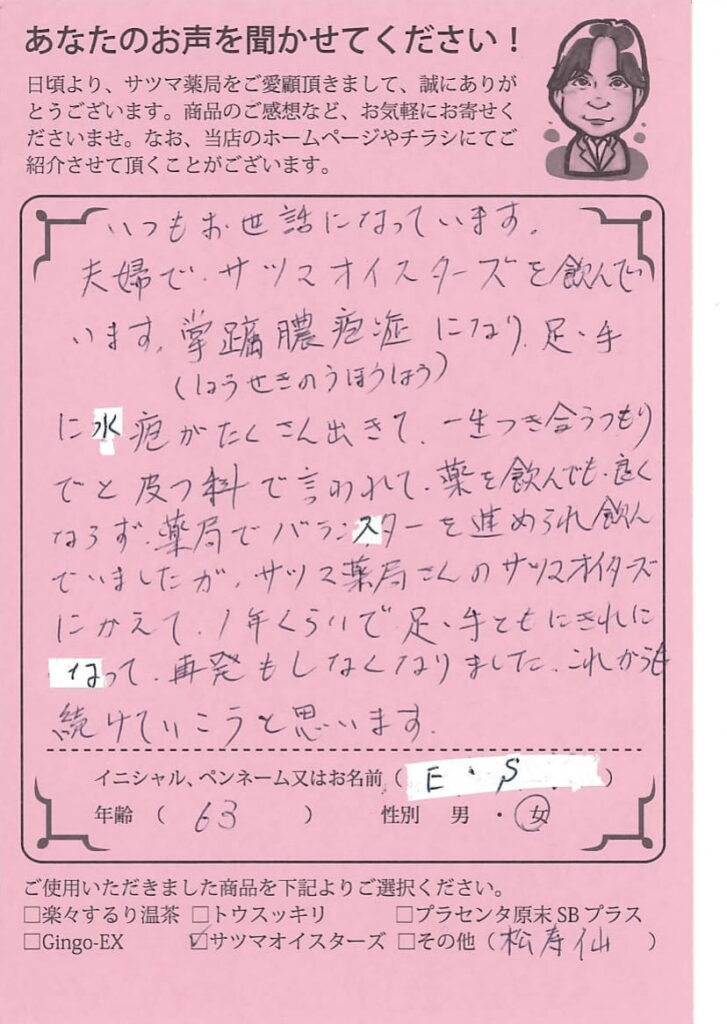 あなたのお声を聞かせてください！
日頃より、サツマ薬局をご愛顧頂きまして、誠にありが
とうございます。商品のご感想など、お気軽にお寄せく
ださいませ。なお、当店のホームページやチラシにてご
紹介させて頂くことがございます。
いつもお世話になっています。
夫婦で、サツマオイスターズを飲んで
います。掌蹠膿疱症になり、足、手
(しょうせきのうほうしょう)
に水疱がたくさん出きて、一生つき合うつもり
でと皮フ科で言われて、薬を飲んでも、良く
ならず、薬局でバランスターを進められ飲ん
でいましたが、サツマ薬局さんのサツマオイターズ
にかえて、1年くらいで足、手ともにきれいに
なって、再発もしなくなりました。これからも
続けていこうと思います。
イニシャル、ペンネーム又はお名前（E・S）
年齢（63） 性別 男・女
ご使用いただきました商品を下記よりご選択ください。
□楽々するり温茶 □トウスッキリ □プラセンタ原末SBプラス
□Gingo-EX ☑サツマオイスターズ □その他（松寿仙）